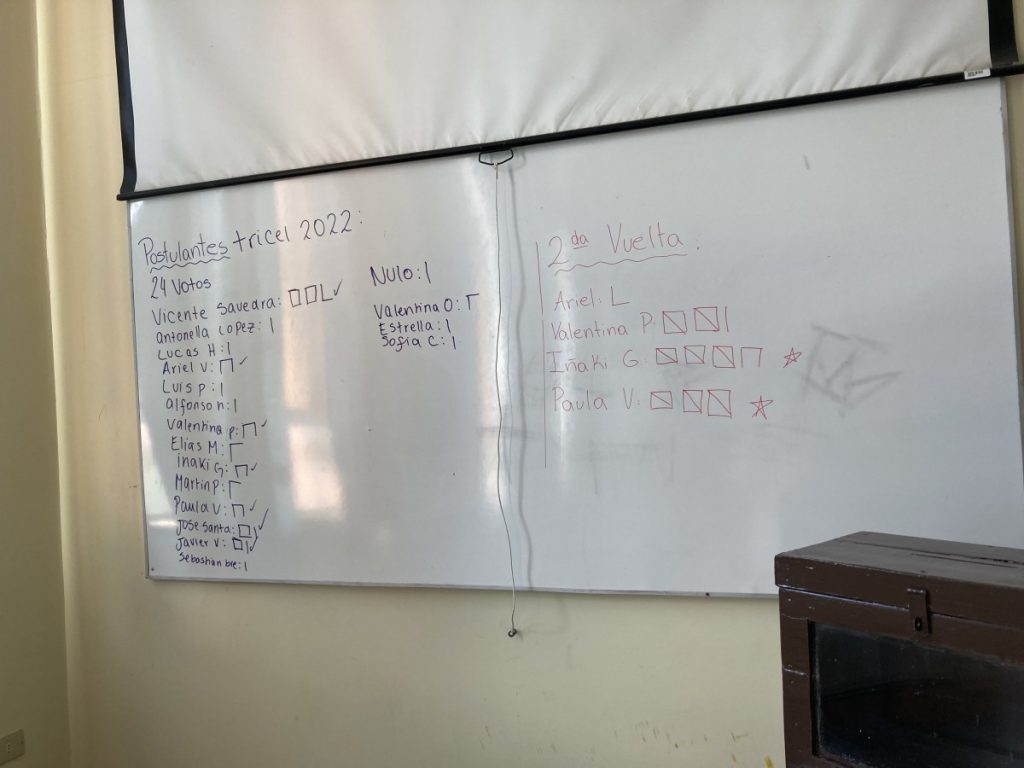 Postulantes tricel 2022:
24 Votos
Vicente Savedra:
Antonella Lopez: |
Lucas H: |
Ariel V: ✓
Luis P: |
alfonso n: |
Valentina P: ✓
Elias M:
iñaki G: ✓
Martin P:
Paula V: ✓
Jose Santa: ✓
Javier V: ✓
Sebastian bre: |
Nulo: |
Valentina O:
Estrella: |
Sofia C: |
2da Vuelta:
Ariel:
Valentina P:
Iñaki G:
Paula V: